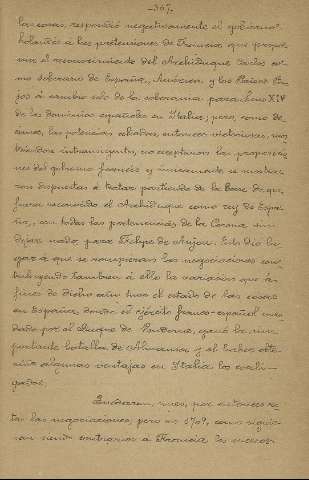 -367-
las cosas, respondió negativamente el gobierno
holandés á las pretensiones de Francia que propo-
nía el reconocimiento del Archiduque Carlos co-
mo soberano de España, América y los Países Ba-
jos á cambio solo de la soberanía para Luis XIV
de los dominios españoles en Italia; pero, como de-
cimos, las potencias aliadas, entonces victoriosas, mos-
trándose intransigentes, no aceptaron las proposicio-
nes del gobierno francés y únicamente se mostra-
ron dispuestas á tratar partiendo de la base de que
fuera reconocido el Archiduque como rey de Espa-
ña, con todas las pertenencias de la Corona sin
dejar nada para Felipe de Anjou. Esto dió lu-
gar á que se rompieran las negociaciones con-
tribuyendo también á ello la variación que á
fines de dicho año tuvo el estado de las cosas
en España, donde el ejército franco-español man-
dado por el duque de ganó la im-
portante batalla de Almansa y el haber obte-
nido algunas ventajas en Italia los coali-
gados.
Quedaron, pues, por entonces ro-
tas las negociaciones, pero en 1709, como siguie-
ran siendo contrarios á Francia los sucesos